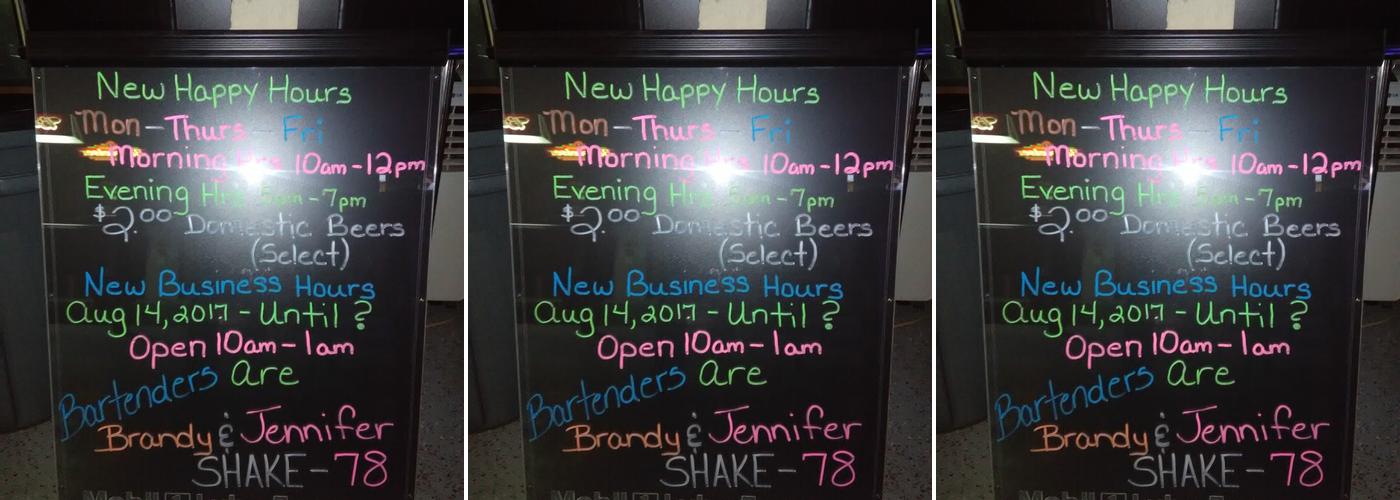 New Happy Hours
Mon - Thurs - Fri
Morning Hrs 10am - 12pm
Evening Hrs 5pm - 7pm
$2.00 Domestic Beers
(Select)
New Business Hours
Aug 14, 2017 - Until ?
Open 10am - 1am
Bartenders are
Brandy & Jennifer
SHAKE - 78
New Happy Hours
Mon - Thurs - Fri
Morning Hrs 10am - 12pm
Evening Hrs 5pm - 7pm
$2.00 Domestic Beers
(Select)
New Business Hours
Aug 14, 2017 - Until ?
Open 10am - 1am
Bartenders are
Brandy & Jennifer
SHAKE - 78
New Happy Hours
Mon - Thurs - Fri
Morning Hrs 10am - 12pm
Evening Hrs 5pm - 7pm
$2.00 Domestic Beers
(Select)
New Business Hours
Aug 14, 2017 - Until ?
Open 10am - 1am
Bartenders are
Brandy & Jennifer
SHAKE - 78